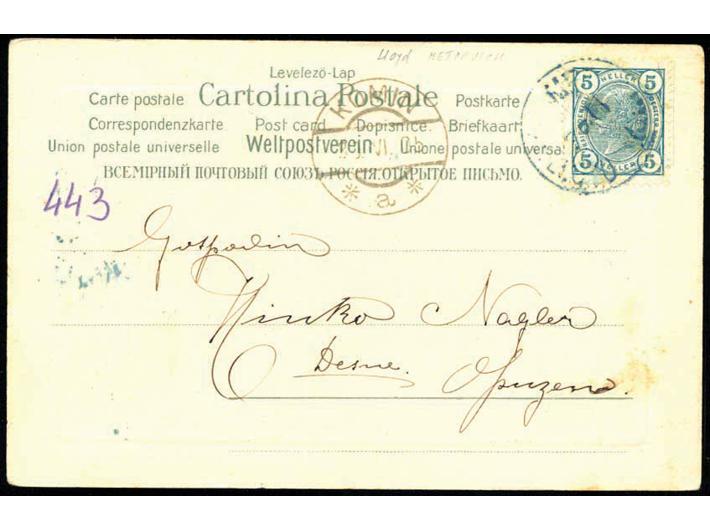 Lloyd METKOVICH
Levelező-Lap
Carte postale Cartolina Postale Postkarte
Correspondenzkarte Post card Dopisnice. Briefkaart
Union postale universelle Weltpostverein Unione postale universa
ВСЕМІРНЫЙ ПОЧТОВЫЙ СОЮЗЪ РОССІЯ.ОТКРЫТОЕ ПИСЬМО.
5 HELLER 5
5 HELLER 5
KOMIN
VI
* a *
443
Gospodin
Vinko Nagler
Desne. Opuzen